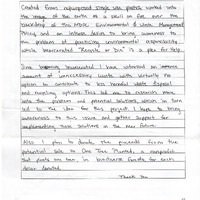 Created from repurposed single use plastics, worked into
the image of the earth as a skull on fire over the
backdrop of this MDOC Environmental & Waste Management
Policy and an intense desire to bring awareness to
the problem of practicing environmental responsibility
while incarcerated "Recycle or Die" is a plea for help.
Since becoming incarcerated I have witnessed an immense
amount of unnecessary waste with virtually no
option to contribute to less harmful waste disposal
and recycling options. This led me to research more
into the problem and potential solutions which in turn
led to the idea for this project. I hope to bring
awareness to this issue and gather support for
implementing these solutions in the near future.
Also I plan to donate the proceeds from the
potential sale to One Tree Planted, a nonprofit
that plants one tree, in biodiverse forests for each
dollar donated.
Thank You